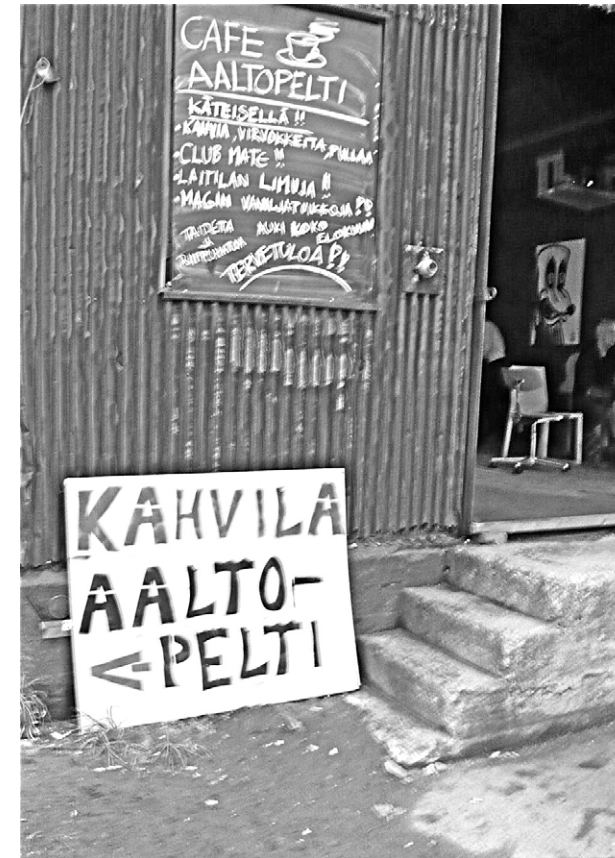 CAFE
AALTOPELTI
KÄTEISELLÄ!!
-KAHVIA, VIRVOKKEITA, PULLAA
-CLUB MATE!!
-LAITILAN LIMUJA!!
-MAGIN VANILJATIKKUJA!?
TAIDETTA
JA
AUKI KOKO
ELOKUUN
TERVETULOA!?
KAHVILA
AALTO-
<-PELTI